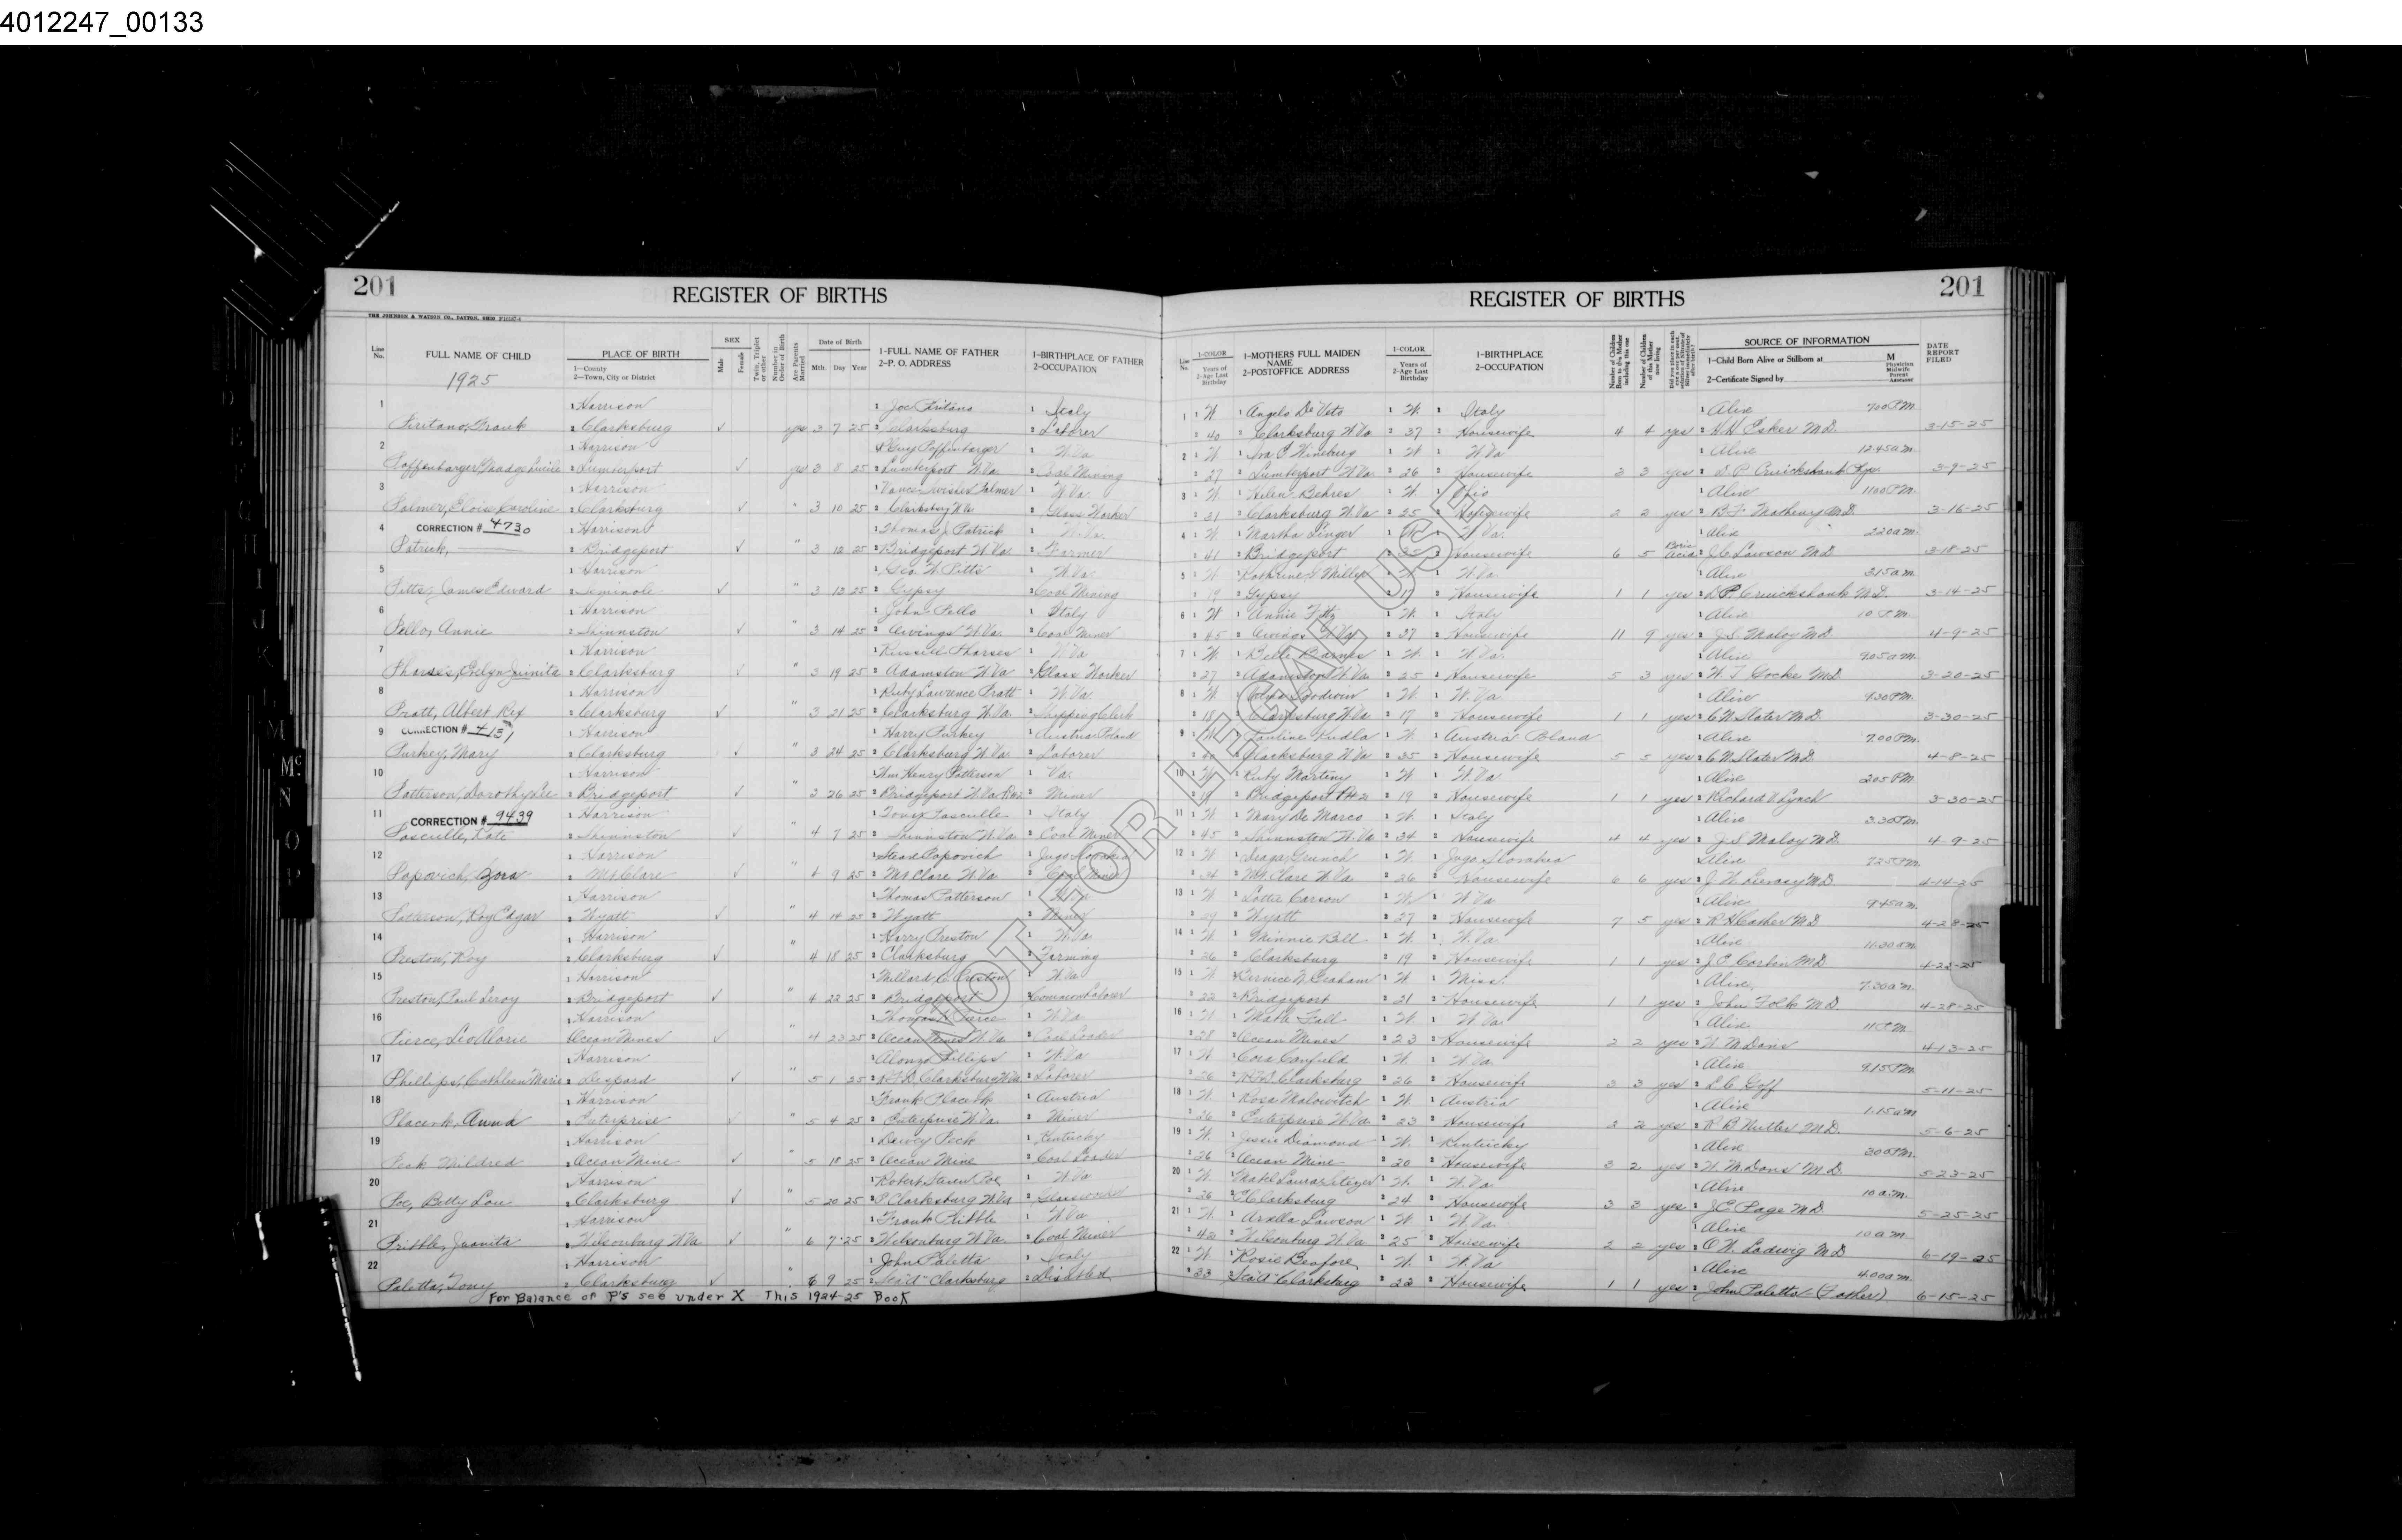 4012247_00133
201
REGISTER OF BIRTHS
THE JOHNSON & WATSON CO., DAYTON, OHIO
Line No.
FULL NAME OF CHILD
1925
PLACE OF BIRTH
1—County
2—Town, City or District
SEX
Male
Female
Twin, Triplet or other
Number in Order of Birth
Are Parents Married
Date of Birth
Mth. Day Year
1-FULL NAME OF FATHER
2-P. O. ADDRESS
1-BIRTHPLACE OF FATHER
2-OCCUPATION
REGISTER OF BIRTHS
201
Line No.
1-COLOR
Years of
2-Age Last Birthday
1-MOTHERS FULL MAIDEN NAME
2-POSTOFFICE ADDRESS
1-COLOR
Years of
2-Age Last Birthday
1-BIRTHPLACE
2-OCCUPATION
Number of Children Born to this Mother including this one
Number of Children of this Mother now living
SOURCE OF INFORMATION
1—Child Born Alive or Stillborn at M
2—Certificate Signed by
Physician
Midwife
Parent
Assessor
DATE REPORT FILED
1 Harrison Joe Piritano Italy 1 W. Angelo De Veto W. Italy Alive 7:00 P.M.
Piritano, Frank Clarksburg ✓ yes 3 7 25 Clarksburg Laborer 40 Clarksburg W Va 37 Housewife 4 4 yes Esker M.D. 3-15-25
2 Harrison Guy Poffenbarger W Va 2 W Iva Wineburg W W Va Alive 12:45 a.m.
Poffenbarger, Madge Lucile Lumberport ✓ yes 3 8 25 Lumberport W. Va. Coal Mining 27 Lumberport W Va 26 Housewife 3 3 yes D. P. Cruickshank 3-9-25
3 Harrison Palmer W. Va. 3 W. Helen Behres W. Ohio Alive 11:00 P.M.
Palmer, Eloise Caroline Clarksburg ✓ " 3 10 25 Clarksburg W Va Glass Worker 31 Clarksburg W. Va 25 Housewife 2 2 yes B. F. Matheny M.D. 3-16-25
4 CORRECTION # 4730 Harrison Thomas J. Patrick W. Va. 4 W. Martha Linger W. W Va. Alive 2:20 a.m.
Patrick, Bridgeport ✓ " 3 12 25 Bridgeport W. Va. Farmer 41 Bridgeport Housewife 6 5 Boric Acid J. C. Lawson M.D. 3-18-25
5 Harrison Geo. W. Pitts W. Va. 5 W. Kathrine Miller W. W. Va. Alive 3:15 a.m.
Pitts, James Edward Seminole ✓ " 3 13 25 Gypsy Coal Mining 19 Gypsy 17 Housewife 1 1 yes D. P. Cruickshank M.D. 3-14-25
6 Harrison John Pello Italy 6 W Annie Fitz W. Italy Alive 10 P.M.
Pello, Annie Shinnston ✓ " 3 14 25 Owings W. Va. Coal Miner 45 Owings W. Va 37 Housewife 11 9 yes J. S. Maloy M.D. 4-9-25
7 Harrison Russell Pharses W Va 7 W. Belle Barnes W. W. Va. Alive 9:05 a.m.
Pharses, Evelyn Juinita Clarksburg ✓ " 3 19 25 Adamston W Va Glass Worker 27 Adamston W. Va 25 Housewife 5 3 yes W. T. Gocke M.D. 3-20-25
8 Harrison Ruby Lawrence Pratt W. Va. 8 W Goodwin W W. Va. Alive 9:30 P.M.
Pratt, Albert Rex Clarksburg ✓ " 3 21 25 Clarksburg W. Va. Shipping Clerk 18 Clarksburg W Va 17 Housewife 1 1 yes C. N. Slater M.D. 3-30-25
9 CORRECTION # 4151 Harrison Harry Purkey Austria Poland 9 W. Pauline Kudla W. Austria Poland Alive 7:00 P.M.
Purkey, Mary Clarksburg ✓ " 3 24 25 Clarksburg W. Va Laborer 40 Clarksburg W Va 35 Housewife 5 5 yes C. N. Slater M.D. 4-8-25
10 Harrison Wm Henry Patterson Va. 10 W Ruby Martiny W W. Va. Alive 2:05 P.M.
Patterson, Dorothy Lee Bridgeport ✓ " 3 26 25 Bridgeport W Va R#2 Miner 19 Bridgeport R#2 19 Housewife 1 1 yes Richard V. Lynch 3-30-25
11 CORRECTION # 9439 Harrison Tony Pasculle Italy 11 W. Mary De Marco W. Italy Alive 3:30 P.M.
Pasculle, Kate Shinnston ✓ " 4 7 25 Shinnston W. Va. Coal Miner 45 Shinnston W. Va 34 Housewife 4 4 yes J. S. Maloy M.D. 4-9-25
12 Harrison Popovich Jugo Slovakia 12 W W. Jugo Slovakia Alive 7:25 P.M.
Popovich, Zora Mt Clare ✓ " 4 9 25 Mt Clare W. Va Coal Miner 34 Mt. Clare W. Va 26 Housewife 6 6 yes 4-14-25
13 Harrison Thomas Patterson W Va 13 W Lottie Carson W. W Va Alive 9:45 a.m.
Patterson, Roy Edgar Wyatt ✓ " 4 14 25 Wyatt Miner Wyatt 27 Housewife 7 5 yes Cather M.D. 4-28-25
14 Harrison Harry Preston W. Va. 14 W. Minnie Bell W. W. Va. Alive
Preston, Roy Clarksburg ✓ 4 18 25 Clarksburg Farming 26 Clarksburg 19 Housewife 1 1 yes Corbin M.D. 4-22-25
15 Harrison Millard C. Preston W. Va. 15 W Bernice N. Graham W Miss. Alive 7:30 a.m.
Preston, Paul Leroy Bridgeport ✓ " 4 22 25 Bridgeport Common Laborer 22 Bridgeport 21 Housewife 1 1 yes John Folk M.D. 4-28-25
16 Harrison Thomas Pierce W Va 16 W Mable Fall W. W Va. Alive 11 P.M.
Pierce, Ocean Mines ✓ " 4 23 25 Ocean Mines W. Va. Coal Loader 28 Ocean Mines 23 Housewife 2 2 yes W. M. Davis 4-13-25
17 Harrison Alonzo Phillips W. Va. 17 W Cora Canfield W. W Va. Alive 9:15 P.M.
Phillips, Cathleen Marie Leopard ✓ " 5 1 25 R.F.D. Clarksburg W. Va Laborer 26 R.F.D. Clarksburg 26 Housewife 3 3 yes L. C. Goff 5-11-25
18 Harrison Frank Placenk Austria 18 W. Rosa Malowitch W. Austria Alive 1:15 a.m.
Placenk, Anna Enterprise ✓ " 5 4 25 Enterprise W. Va. Miner 26 Enterprise W. Va 23 Housewife 2 2 yes Nutter M.D. 5-6-25
19 Harrison Dewey Peck Kentucky 19 W. Jessie Diamond W. Kentucky Alive 3:00 P.M.
Peck Mildred Ocean Mine ✓ " 5 18 25 Ocean Mine Coal Loader 26 Ocean Mine 20 Housewife 3 2 yes W. M. Davis M.D. 5-23-25
20 Harrison Robert Steven Poe W Va 20 W. W. W. Va. Alive 10 a.m.
Poe, Betty Lou Clarksburg ✓ " 5 20 25 Clarksburg W. Va Glassworker 26 Clarksburg 24 Housewife 3 3 yes J. E. Page M.D. 5-25-25
21 Harrison Frank Pribble W Va 21 W. Arella Lawson W. W. Va. Alive 10 a.m.
Pribble, Juanita Wilsonburg W. Va. ✓ 6 7 25 Wilsonburg W. Va. Coal Miner 42 Wilsonburg W. Va 25 Housewife 2 2 yes O. W. Ladwig M.D. 6-19-25
22 Harrison John Paletta Italy 22 W. Rosie Benfore W. W. Va Alive 4:00 a.m.
Paletta, Tony Clarksburg ✓ " 6 9 25 Clarksburg Disabled 33 Clarksburg 22 Housewife 1 1 yes John Paletta (Father) 6-15-25
For Balance of P's see under X This 1924-25 Book
NOT FOR LEGAL USE